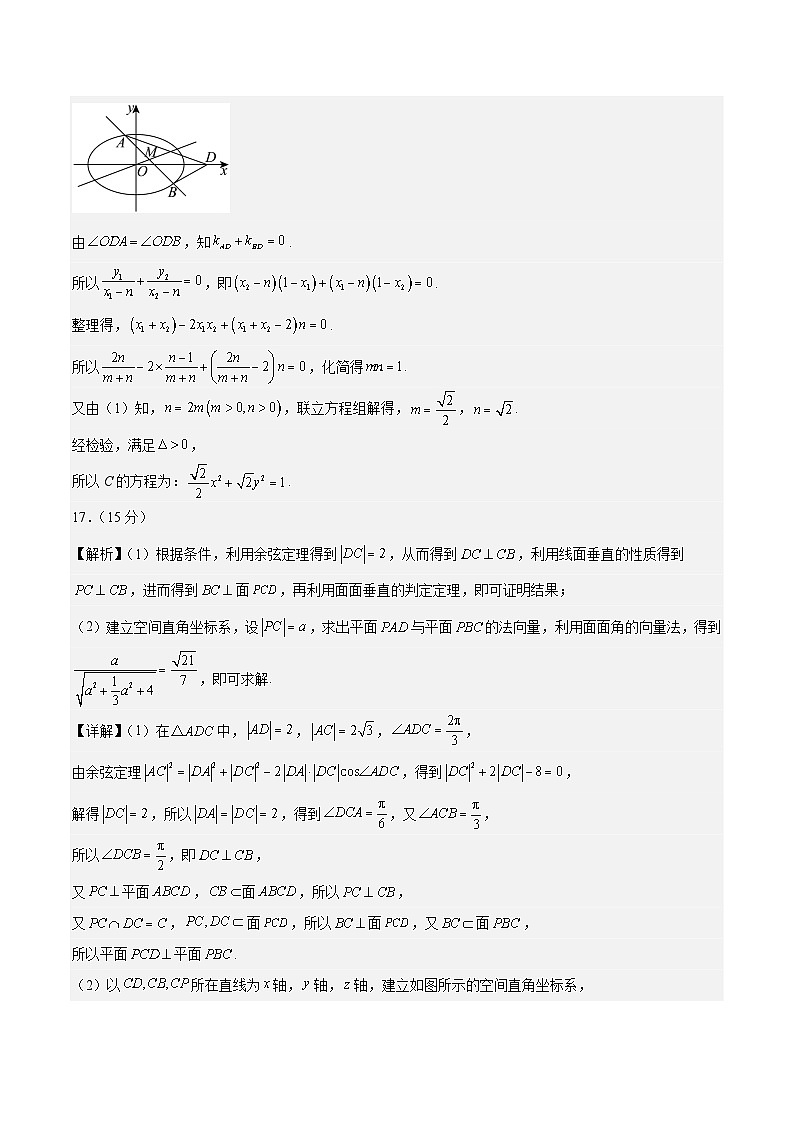 y
A
M
D
O
x
B
由∠ODA=∠ODB,知k_{AD}+k_{BD}=0.
所以\frac{y_1}{x_1-n}+\frac{y_2}{x_2-n}=0,即(x_2-n)(1-x_1)+(x_1-n)(1-x_2)=0.
整理得,(x_1+x_2)-2x_1x_2+(x_1+x_2-2)n=0.
所以\frac{2n}{m+n}-2×\frac{n-1}{m+n}+(\frac{2n}{m+n}-2)n=0,化简得mn=1.
又由(1)知,n=2m(m>0,n>0),联立方程组解得,m=\frac{\sqrt{2}}{2},n=\sqrt{2}.
经检验,满足Δ>0,
所以C的方程为:\frac{\sqrt{2}}{2}x^2+\sqrt{2}y^2=1.
17.(15分)
【解析】(1)根据条件,利用余弦定理得到|DC|=2,从而得到DC⊥CB,利用线面垂直的性质得到
PC⊥CB,进而得到BC⊥面PCD,再利用面面垂直的判定定理,即可证明结果;
(2)建立空间直角坐标系,设|PC|=a,求出平面PAD与平面PBC的法向量,利用面面角的向量法,得到
\frac{a}{\sqrt{a^2+\frac{1}{3}a^2+4}}=\frac{\sqrt{21}}{7},即可求解.
【详解】(1)在△ADC中,|AD|=2,|AC|=2\sqrt{3},∠ADC=\frac{2π}{3},
由余弦定理|AC|^2=|DA|^2+|DC|^2-2|DA|·|DC|cos∠ADC,得到|DC|^2+2|DC|-8=0,
解得|DC|=2,所以|DA|=|DC|=2,得到∠DCA=\frac{π}{6},又∠ACB=\frac{π}{3},
所以∠DCB=\frac{π}{2},即DC⊥CB,
又PC⊥平面ABCD,CB⊂面ABCD,所以PC⊥CB,
又PC∩DC=C,PC,DC⊂面PCD,所以BC⊥面PCD,又BC⊂面PBC,
所以平面PCD⊥平面PBC.
(2)以CD,CB,CP所在直线为x轴,y轴,z轴,建立如图所示的空间直角坐标系,